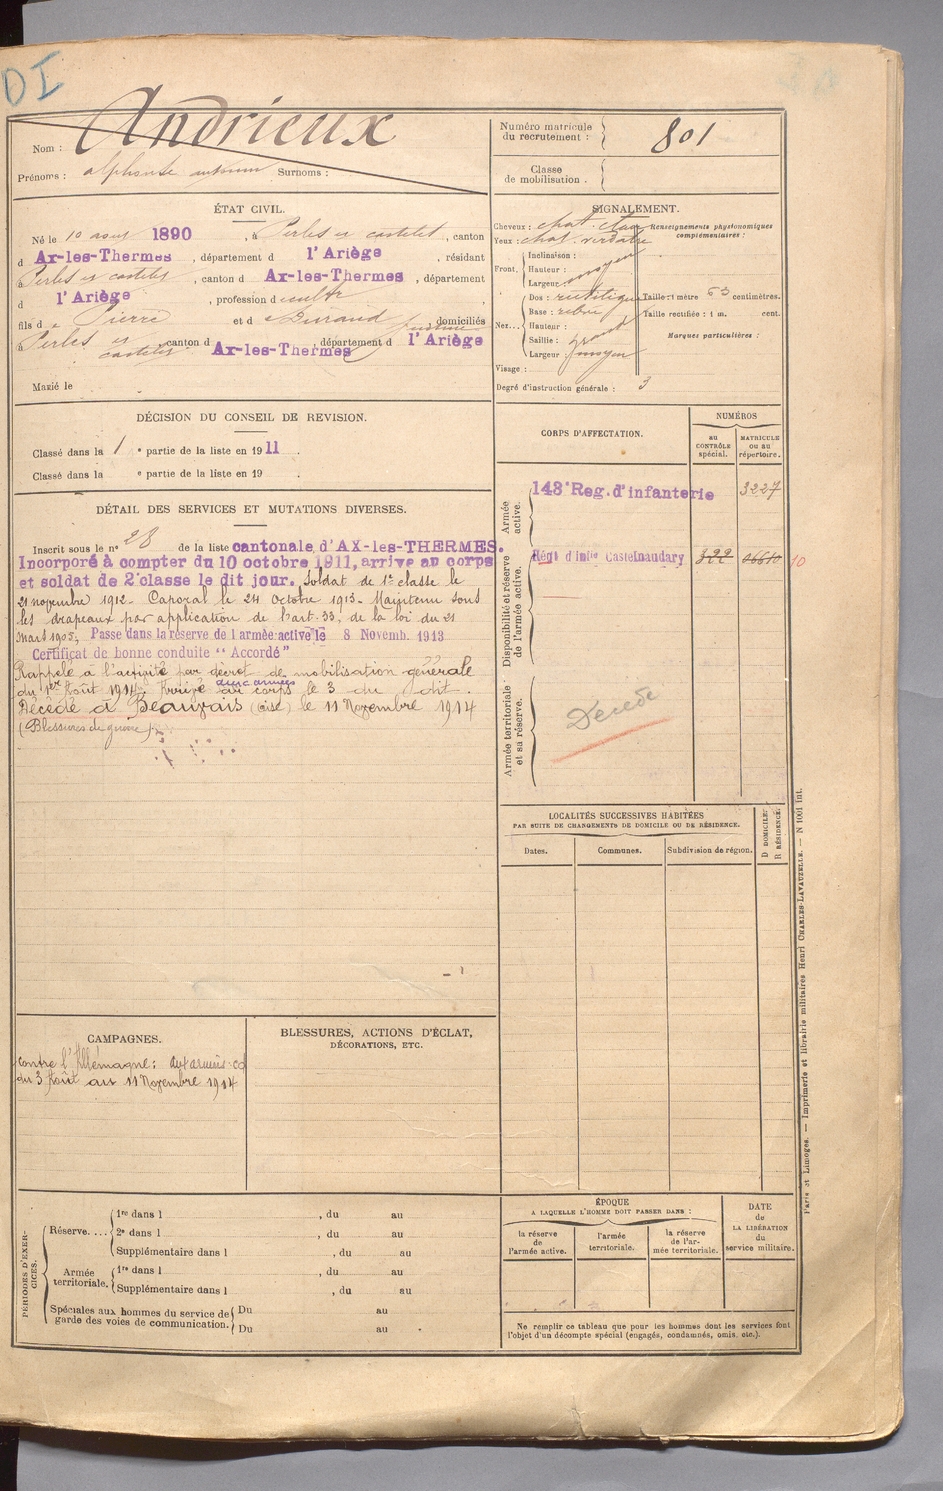 DI
Nom : Andrieux
Prénoms : alphonse Surnoms :
Numéro matricule du recrutement : 801
Classe de mobilisation .
ÉTAT CIVIL.
Né le 10 aout 1890 , à Perles et castelet , canton
d Ax-les-Thermes , département d l'Ariège , résidant
Perles et castelet , canton d Ax-les-Thermes , département
d l'Ariège , profession de cultr ,
fils de Pierre et de Durand domiciliés
à Perles et castelet canton d Ax-les-Thermes , département d l'Ariège
Marié le
SIGNALEMENT.
Cheveux : chat. clair
Yeux : chat. verdatre
Renseignements physionomiques complémentaires :
Front, Inclinaison :
Hauteur : moyen
Largeur :
Nez... Dos : rectiligne
Base : relevé
Hauteur :
Saillie : grand
Largeur : moyen
Visage :
Taille : 1 mètre 63 centimètres.
Taille rectifiée : 1 m. cent.
Marques particulières :
Degré d'instruction générale : 3
DÉCISION DU CONSEIL DE REVISION.
Classé dans la 1 e partie de la liste en 1911 .
Classé dans la e partie de la liste en 19 .
DÉTAIL DES SERVICES ET MUTATIONS DIVERSES.
Inscrit sous le n° 28 de la liste cantonale d'AX-les-THERMES.
Incorporé à compter du 10 octobre 1911, arrive au corps
et soldat de 2e classe le dit jour. Soldat de 1e classe le
21 novembre 1912. Caporal le 24 octobre 1913. Maintenu sous
les drapeaux par application de l'art. 33, de la loi du 21
mars 1905, Passe dans la réserve de l'armée active le 8 Novemb. 1913
Certificat de bonne conduite "Accordé"
Rappelé à l'activité par décret de mobilisation générale
du 1er Août 1914. Arrivé au corps le 3 du dit.
aux armées
Décédé à Beauvais (Oise) le 11 Novembre 1914
(Blessures de guerre).
CORPS D'AFFECTATION.
NUMÉROS
AU CONTRÔLE spécial.
MATRICULE ou au répertoire.
Armée active.
143e Reg. d'infanterie 3227
Disponibilité et réserve de l'armée active.
Régt d'Infie Castelnaudary 322 06610 10
Armée territoriale et sa réserve.
Décédé
LOCALITÉS SUCCESSIVES HABITÉES
PAR SUITE DE CHANGEMENTS DE DOMICILE OU DE RÉSIDENCE.
Dates.
Communes.
Subdivision de région.
D DOMICILE.
R RÉSIDENCE.
CAMPAGNES.
Contre l'Allemagne : aux armées
du 3 Août au 11 Novembre 1914
BLESSURES, ACTIONS D'ÉCLAT,
DÉCORATIONS, ETC.
PÉRIODES D'EXERCICES.
Réserve.... 1re dans l , du au
2e dans l , du au
Supplémentaire dans l , du au
Armée territoriale. 1re dans l , du au
Supplémentaire dans l , du au
Spéciales aux hommes du service de garde des voies de communication. Du au
Du au .
ÉPOQUE
A LAQUELLE L'HOMME DOIT PASSER DANS :
la réserve de l'armée active.
l'armée territoriale.
la réserve de l'armée territoriale.
DATE de LA LIBÉRATION du service militaire.
Ne remplir ce tableau que pour les hommes dont les services font
l'objet d'un décompte spécial (engagés, condamnés, omis, etc.).
Paris et Limoges. — Imprimerie et librairie militaires Henri CHARLES-LAVAUZELLE. — N 1001 int.